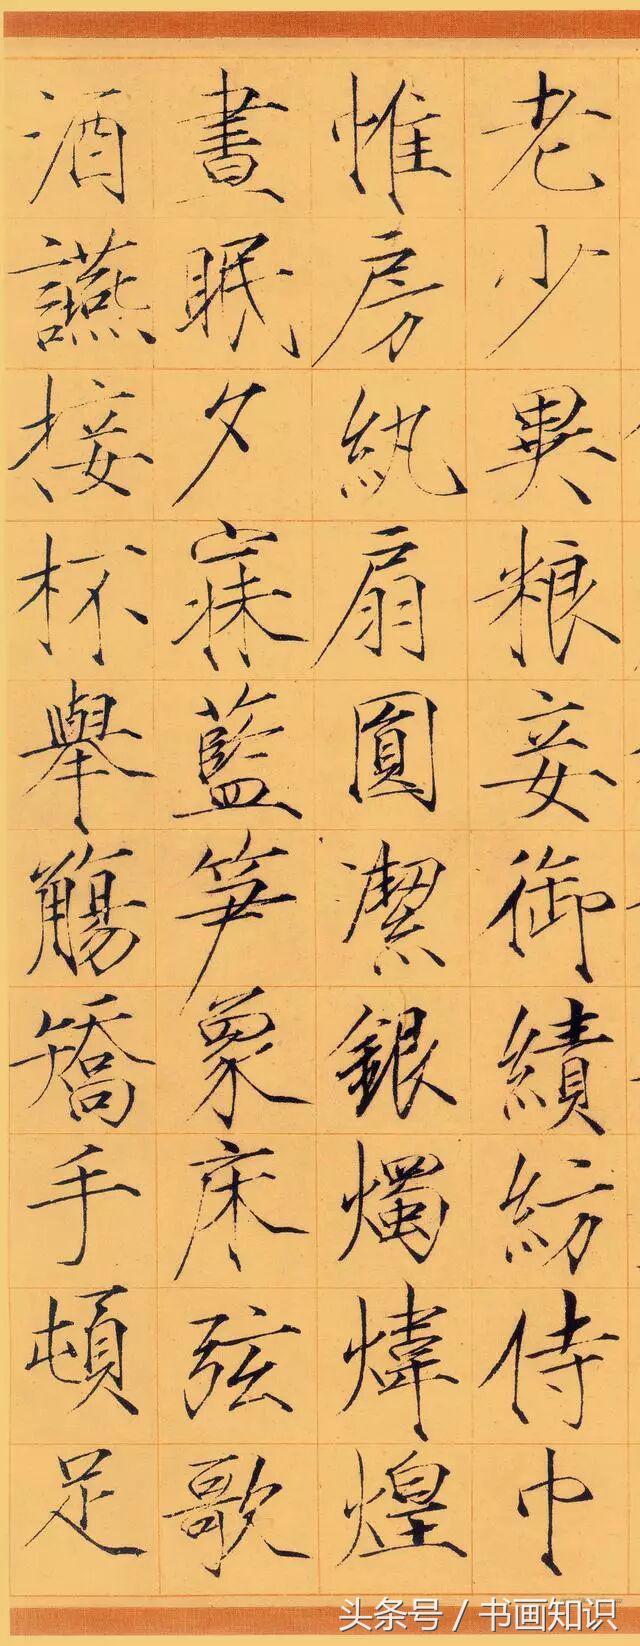 老少異粮妾御績紡侍巾
帷房紈扇圓潔銀燭煒煌
晝眠夕寐藍笋象床弦歌
酒讌接杯舉觴矯手頓足
头条号 / 书画知识